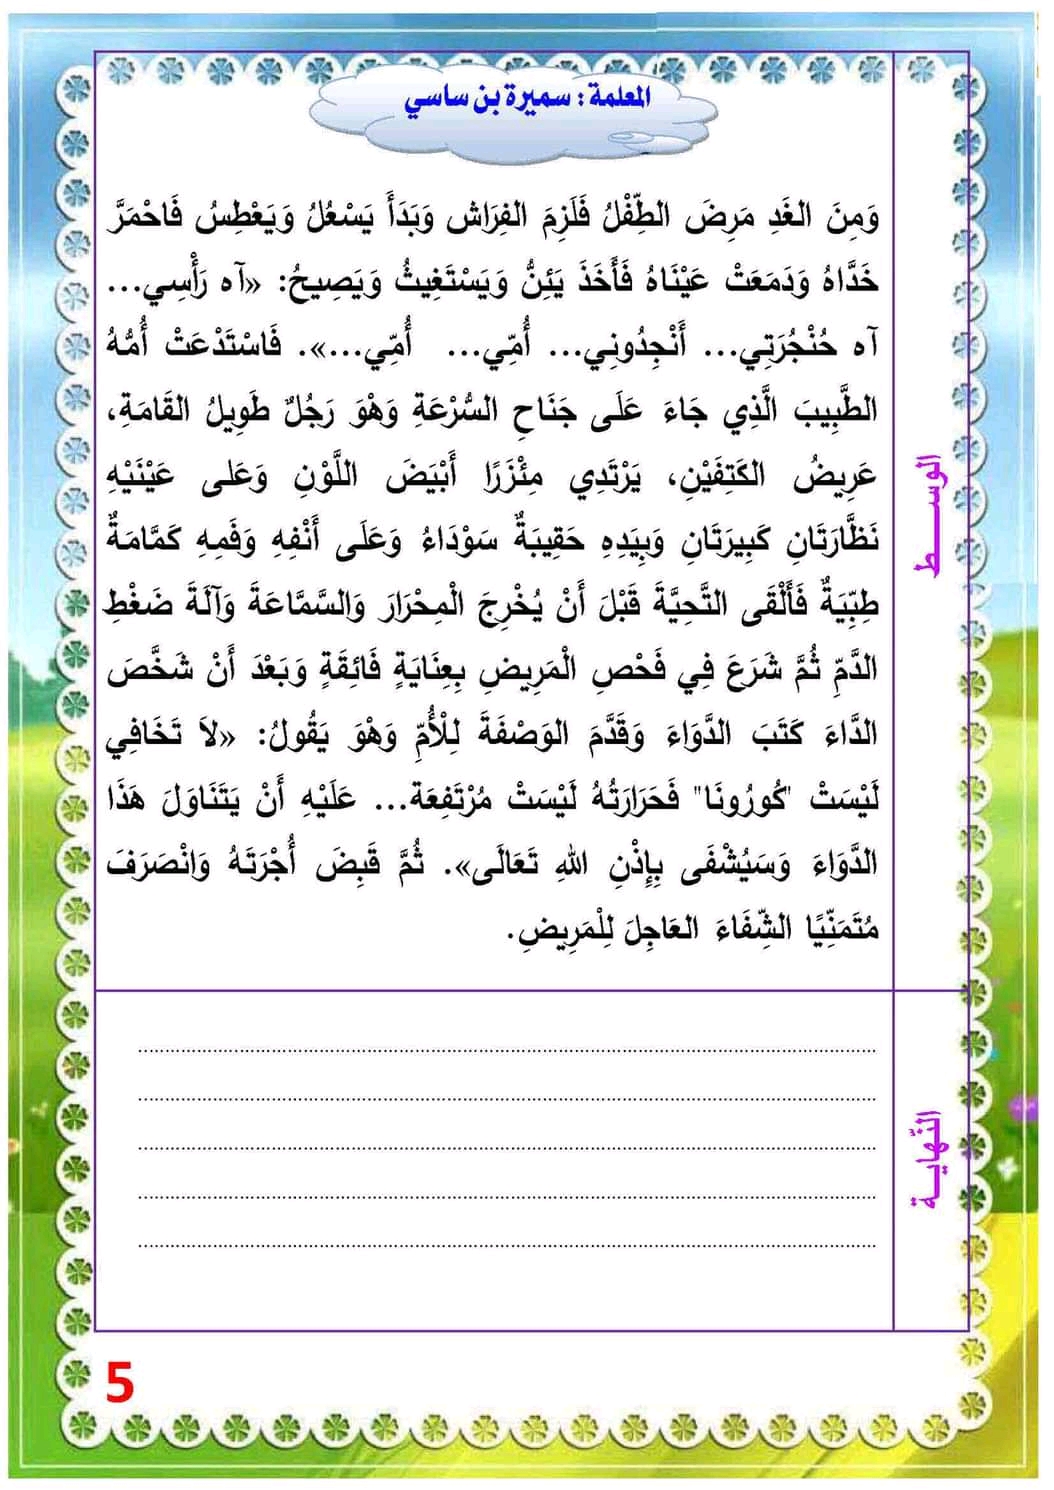 المعلمة : سميرة بن ساسي
وَمِنَ الغَدِ مَرِضَ الطِّفْلُ فَلَزِمَ الفِرَاش وَبَدَأَ يَسْعُلُ وَيَعْطِسُ فَاحْمَرَّ
خَدَّاهُ وَدَمَعَتْ عَيْنَاهُ فَأَخَذَ يَئِنُّ وَيَسْتَغِيثُ وَيَصِيحُ: «آه رَأْسِي...
آه حُنْجُرَتِي... أَنْجِدُونِي... أُمِّي... أُمِّي...». فَاسْتَدْعَتْ أُمُّهُ
الطَّبِيبَ الَّذِي جَاءَ عَلَى جَنَاحِ السُّرْعَةِ وَهْوَ رَجُلٌ طَوِيلُ القَامَةِ،
عَرِيضُ الكَتِفَيْنِ، يَرْتَدِي مِئْزَرًا أَبْيَضَ اللَّوْنِ وَعَلى عَيْنَيْهِ
نَظَّارَتَانِ كَبِيرَتَانِ وَبِيَدِهِ حَقِيبَةٌ سَوْدَاءُ وَعَلَى أَنْفِهِ وَفَمِهِ كَمَّامَةٌ
طِبِّيَةٌ فَأَلْقَى التَّحِيَّةَ قَبْلَ أَنْ يُخْرِجَ الْمِحْرَارَ وَالسَّمَّاعَةَ وَآلَةَ ضَغْطِ
الدَّمِّ ثُمَّ شَرَعَ فِي فَحْصِ الْمَرِيضِ بِعِنَايَةٍ فَائِقَةٍ وَبَعْدَ أَنْ شَخَّصَ
الدَّاءَ كَتَبَ الدَّوَاءَ وَقَدَّمَ الوَصْفَةَ لِلْأُمِّ وَهْوَ يَقُولُ: «لاَ تَخَافِي
لَيْسَتْ "كُورُونَا" فَحَرَارَتُهُ لَيْسَتْ مُرْتَفِعَة... عَلَيْهِ أَنْ يَتَنَاوَلَ هَذَا
الدَّوَاءَ وَسَيُشْفَى بِإِذْنِ اللهِ تَعَالَى». ثُمَّ قَبِضَ أُجْرَتَهُ وَانْصَرَفَ
مُتَمَنِّيًا الشِّفَاءَ العَاجِلَ لِلْمَرِيضِ.
الوســـــط
النّهايـــة
5